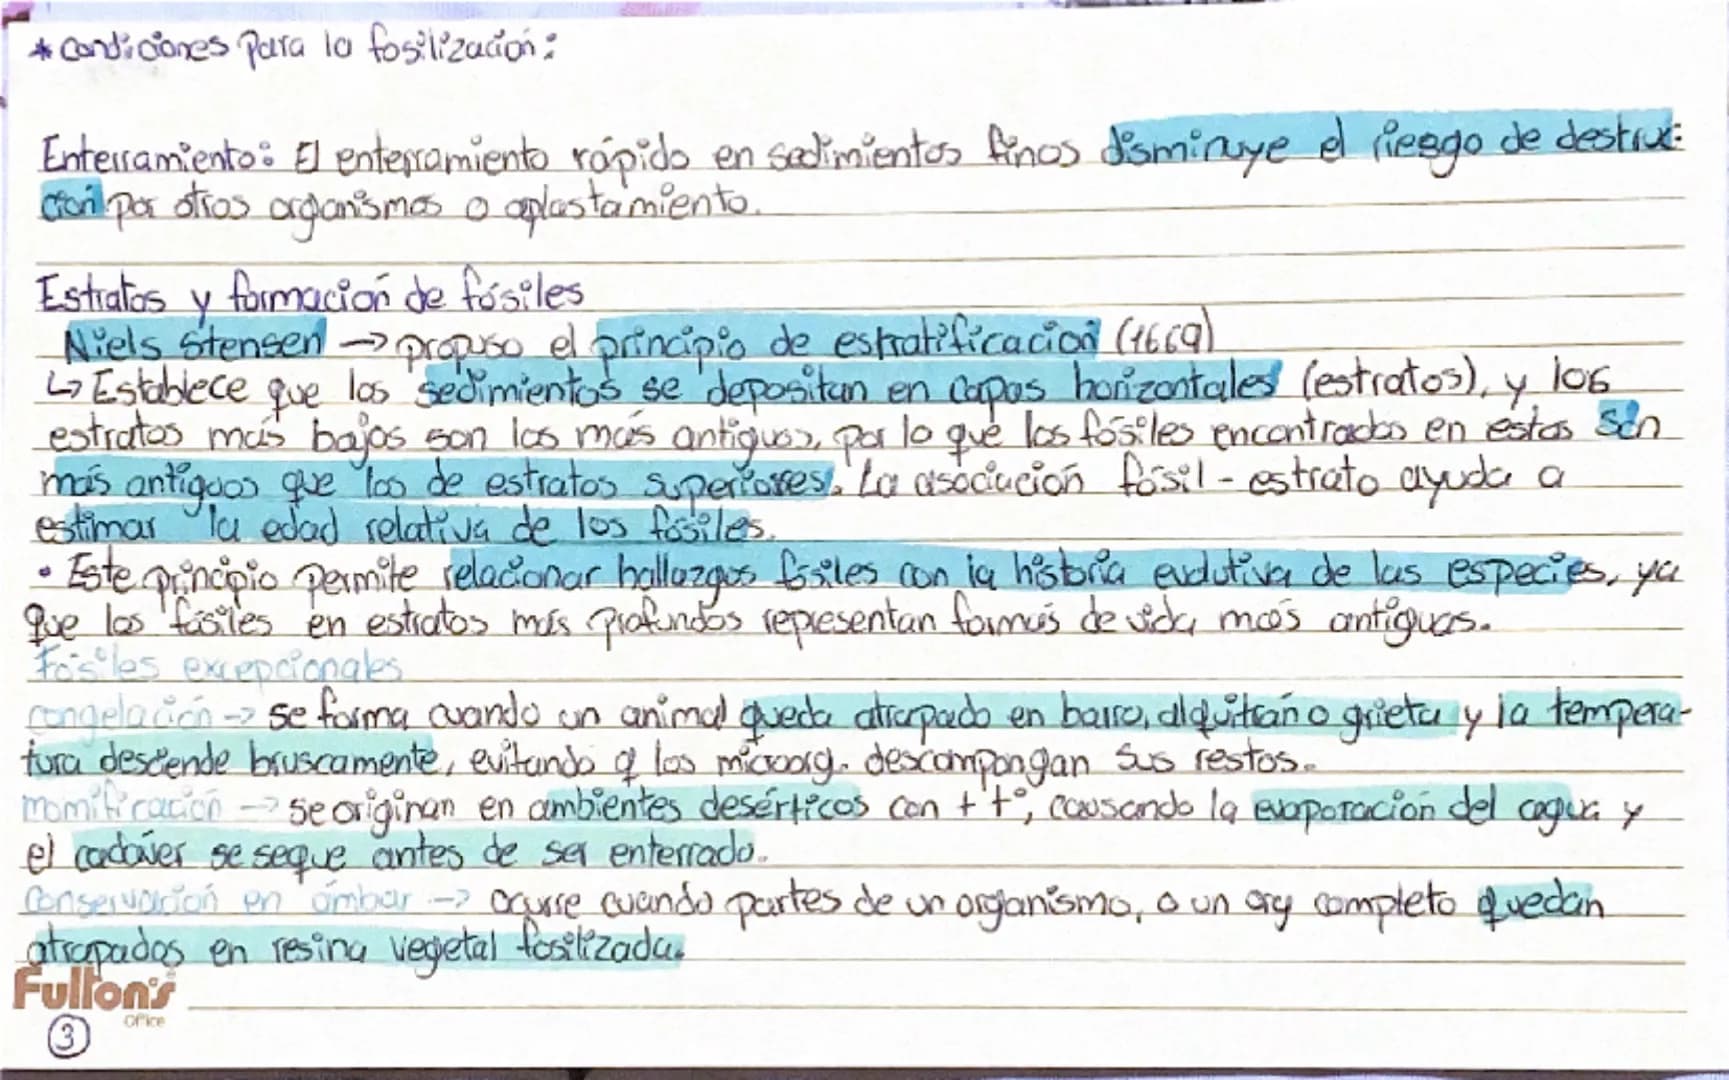 * Condiciones para la fosilización:
Enterramiento: El enterramiento rápido en sedimientos finos disminuye el riesgo de destruc-
ción por otros organismos o aplastamiento.
Estratos y formación de fósiles
Niels Stensen → propuso el principio de estratificación (1669)
↳ Establece que los sedimientos se depositan en capas horizontales (estratos), y los
estratos más bajos son los más antiguos, por lo que los fósiles encontrados en estos son
más antiguos que los de estratos superiores. La asociación fósil - estrato ayuda a
estimar la edad relativa de los fósiles.
• Este principio permite relacionar hallazgos fósiles con la historia evolutiva de las especies, ya
que los fósiles en estratos más profundos representan formas de vida más antiguas.
Fósiles excepcionales
congelación → se forma cuando un animal queda atrapado en barro, alquitrán o grieta y la tempera-
tura desciende bruscamente, evitando q los microorg. descompongan sus restos.
momificación → se originan en ambientes desérticos con + t°, causando la evaporación del cagua y
el cadáver se seque antes de ser enterrado.
Conservación en ámbar → ocurre cuando partes de un organismo, o un org completo quedan
atrapados en resina vegetal fosilizada.
Fulton's
Office
3